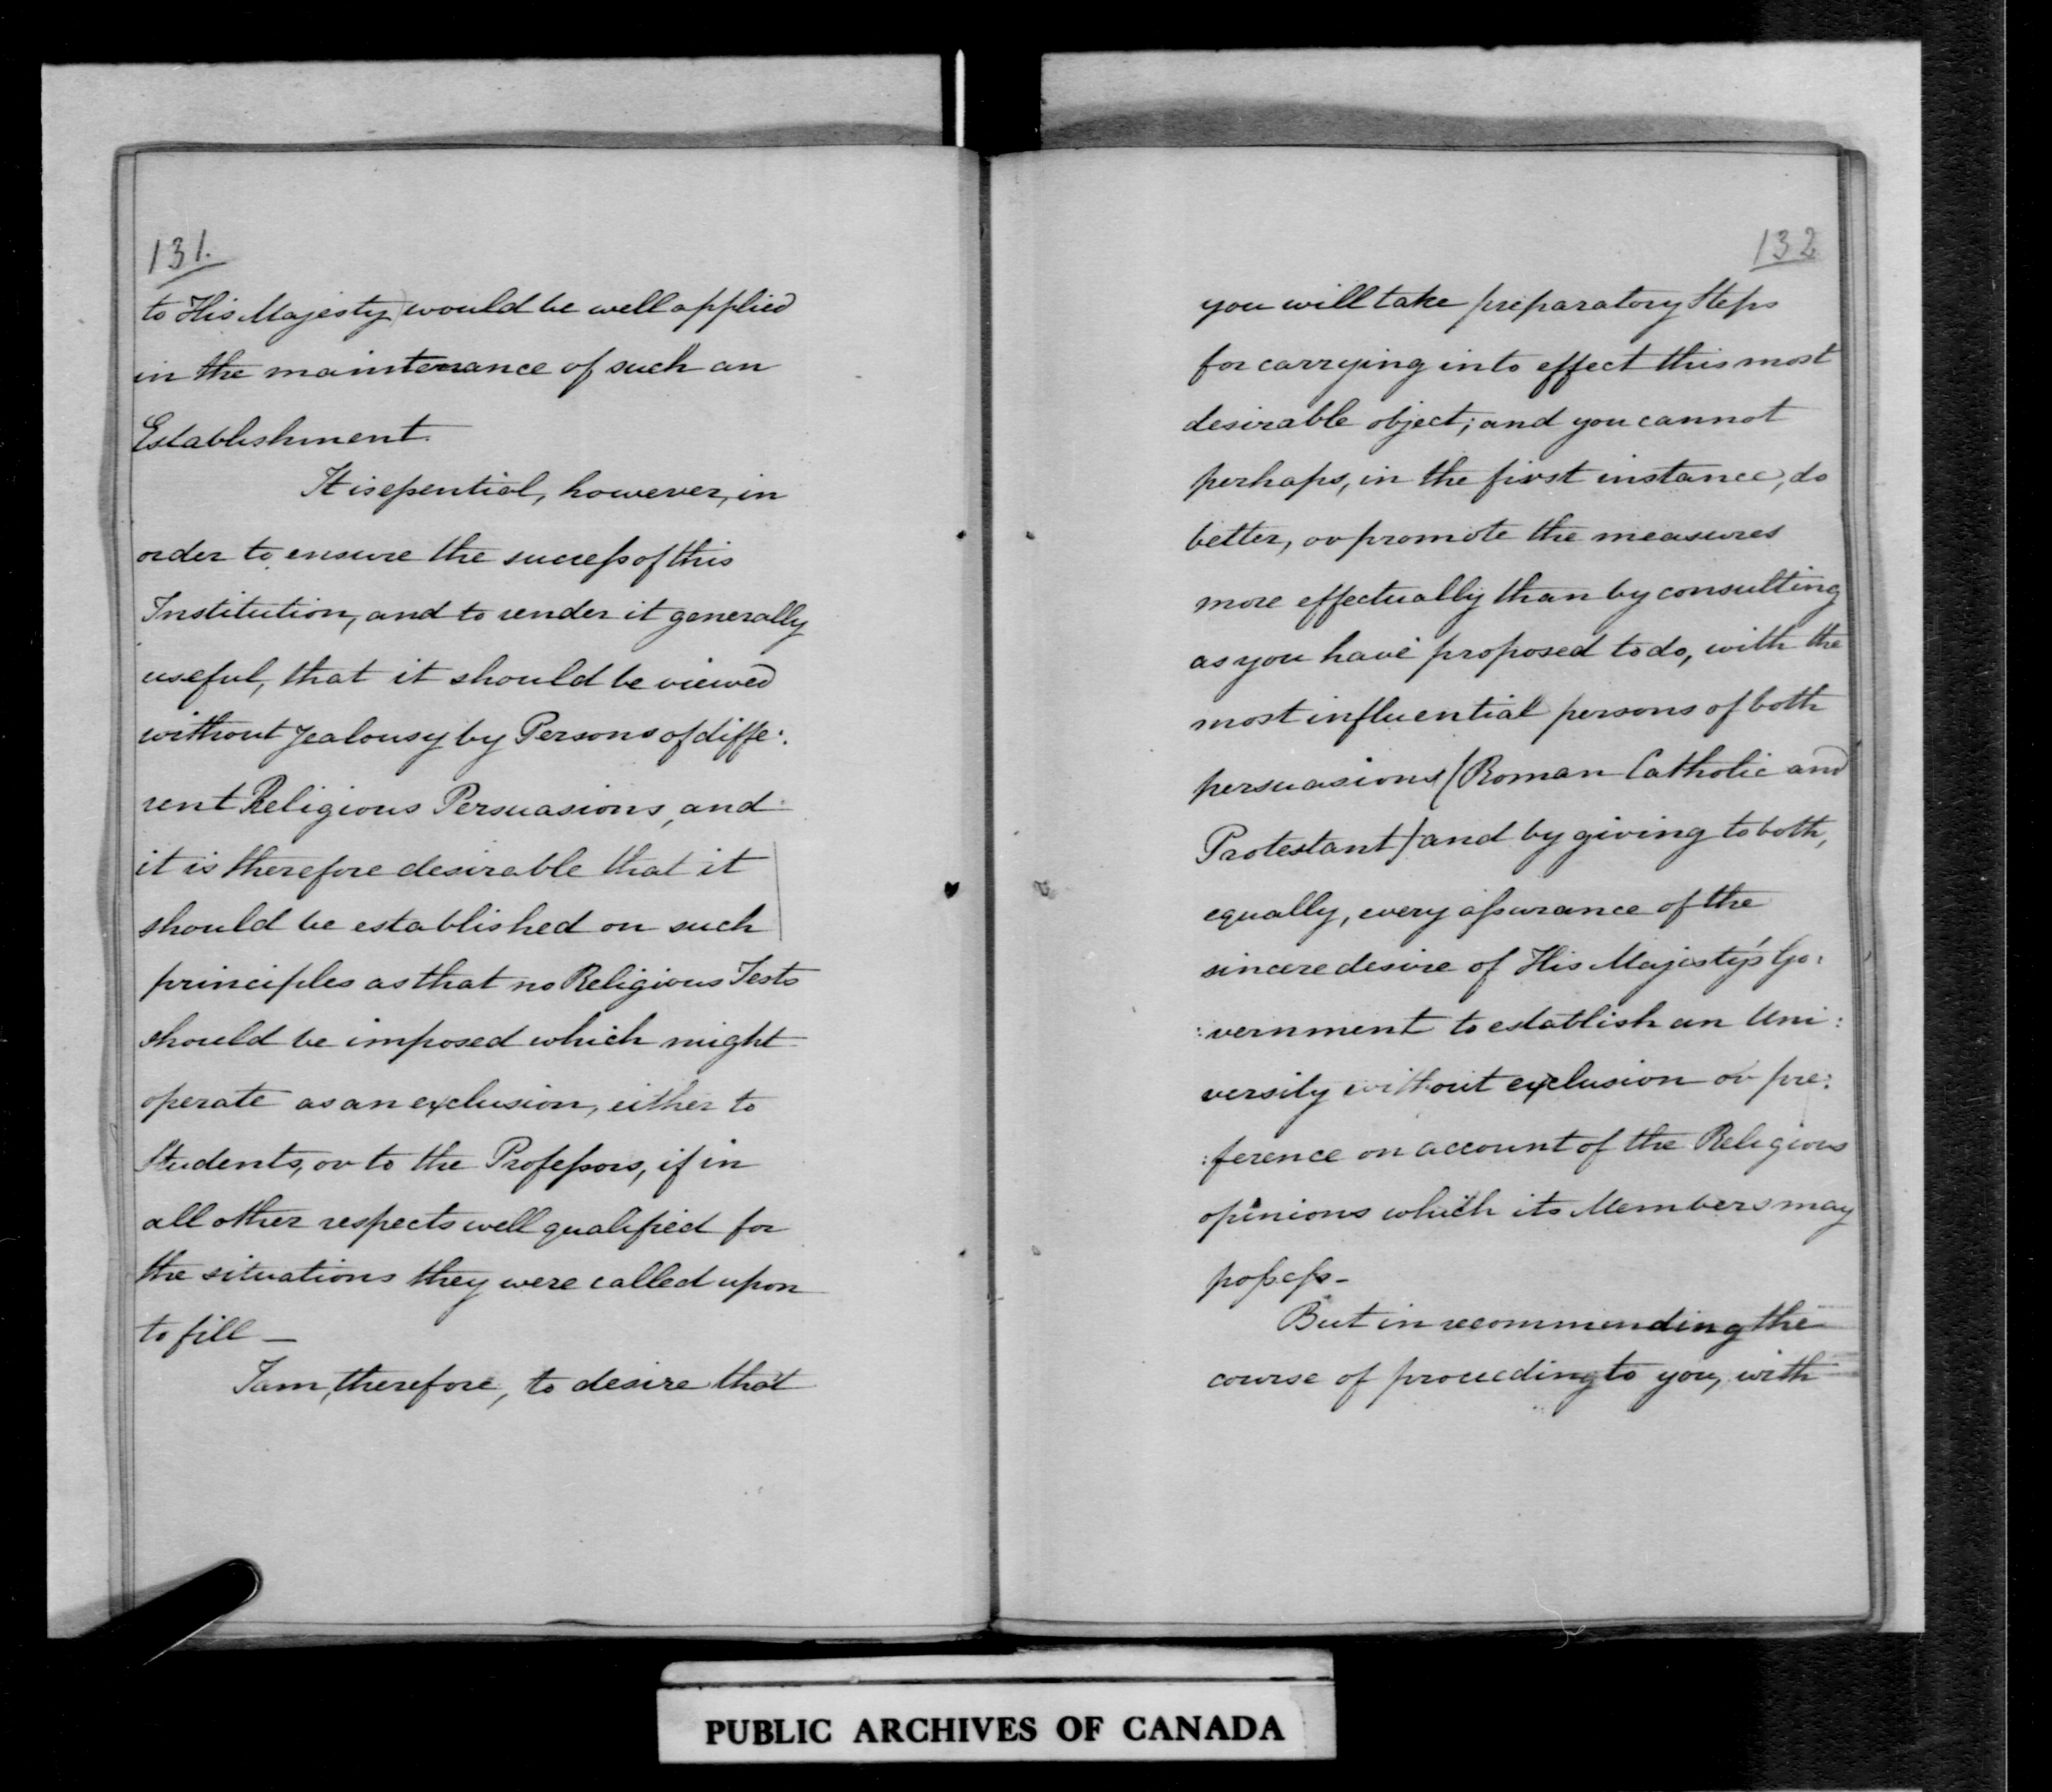 131.
to His Majesty) would be well applied
in the maintenance of such an
Establishment.
It is essential, however, in
order to ensure the success of this
Institution, and to render it generally
useful, that it should be viewed
without Jealousy by Persons of diffe:
rent Religious Persuasions, and
it is therefore desirable that it
should be established on such
principles as that no Religious Tests
should be imposed which might
operate as an exclusion, either to
Students, or to the Professors, if in
all other respects well qualified for
the situations they were called upon
to fill —
I am, therefore, to desire that
132
you will take preparatory Steps
for carrying into effect this most
desirable object; and you cannot
perhaps, in the first instance, do
better, or promote the measures
more effectually than by consulting
as you have proposed to do, with the
most influential persons of both
persuasions (Roman Catholic and
Protestant) and by giving to both,
equally, every assurance of the
sincere desire of His Majesty's Go:
:vernment to establish an Uni:
versity without exclusion or pre:
:ference on account of the Religious
opinions which its Members may
possess —
But in recommending the
course of proceeding to you, with
PUBLIC ARCHIVES OF CANADA